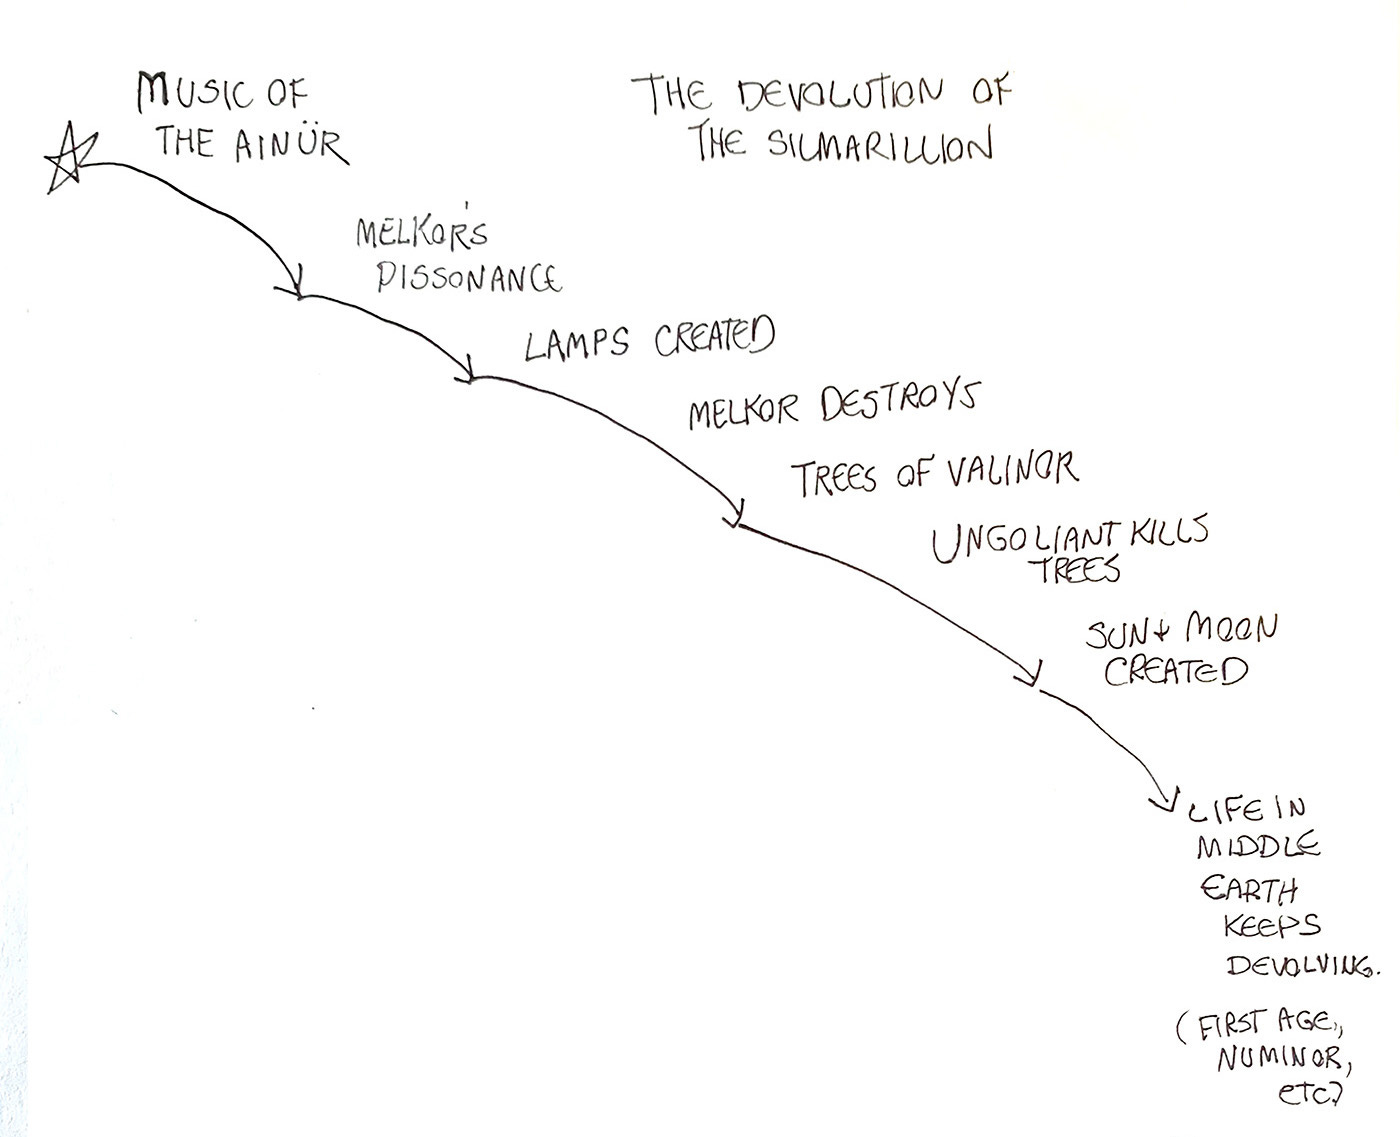 MUSIC OF
THE AINÜR
THE DEVOLUTION OF
THE SILMARILLION
MELKOR'S
DISSONANCE
LAMPS CREATED
MELKOR DESTROYS
TREES OF VALINOR
UNGOLIANT KILLS
TREES
SUN + MOON
CREATED
LIFE IN
MIDDLE
EARTH
KEEPS
DEVOLVING.
(FIRST AGE,,
NUMINOR,
ETC)